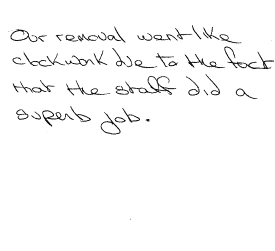 Our removal went like
clockwork due to the fact
that the staff did a
superb job.